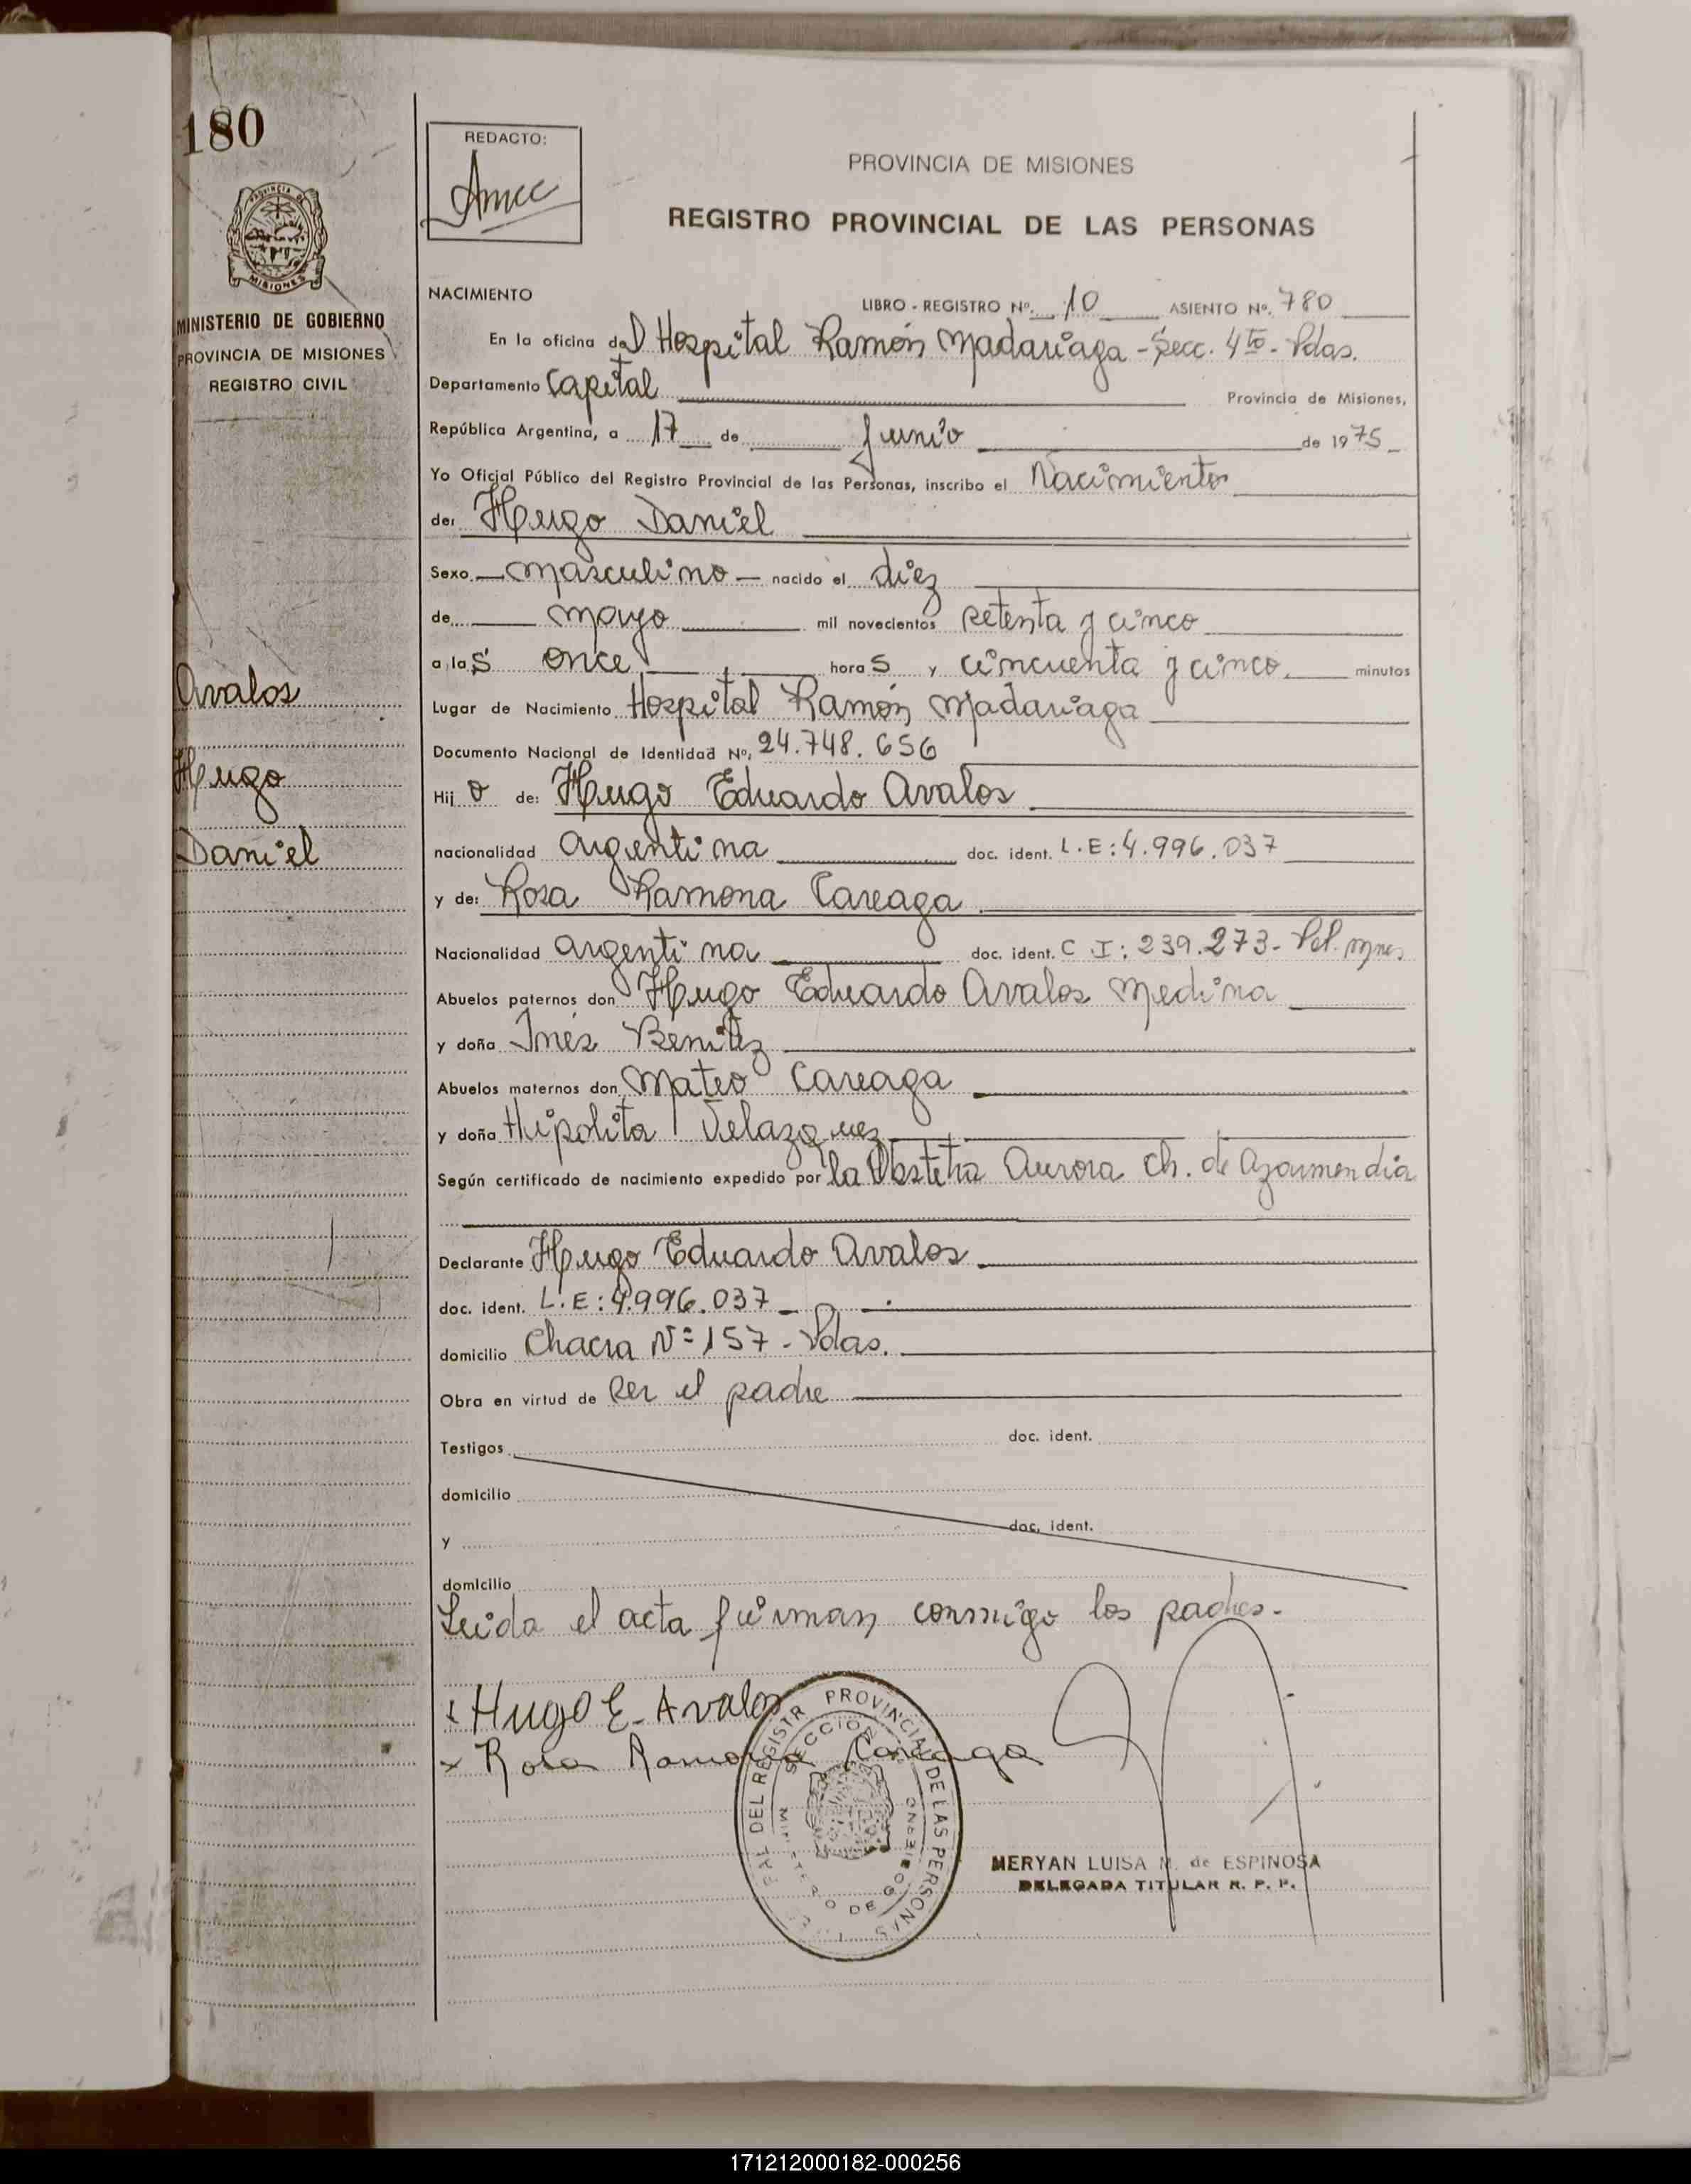 180
PROVINCIA DE
MISIONES
MINISTERIO DE GOBIERNO
PROVINCIA DE MISIONES
REGISTRO CIVIL
Avalos
Hugo
Daniel
REDACTO:
PROVINCIA DE MISIONES
REGISTRO PROVINCIAL DE LAS PERSONAS
NACIMIENTO LIBRO - REGISTRO Nº. 10 ASIENTO Nº. 780
En la oficina del Hospital Ramón Madariaga - Secc. 4to - Pdas.
Departamento Capital Provincia de Misiones,
República Argentina, a 17 de Junio de 1975
Yo Oficial Público del Registro Provincial de las Personas, inscribo el Nacimiento
de: Hugo Daniel
Sexo masculino nacido el diez
de mayo mil novecientos setenta y cinco
a las once horas y cincuenta y cinco minutos
Lugar de Nacimiento Hospital Ramón Madariaga
Documento Nacional de Identidad Nº. 24.748.656
Hijo de: Hugo Eduardo Avalos
nacionalidad argentina doc. ident. L.E: 4.996.037
y de: Rosa Ramona Careaga
Nacionalidad argentina doc. ident. C I: 239.273- Pol. Mnes
Abuelos paternos don Hugo Eduardo Avalos Medina
y doña Inés Benitez
Abuelos maternos don Mateo Careaga
y doña Hipólita Velazquez
Según certificado de nacimiento expedido por la Obstetra Aurora Ch. de Azarmendia
Declarante Hugo Eduardo Avalos
doc. ident. L.E: 4.996.037
domicilio Chacra Nº 157 - Pdas.
Obra en virtud de ser el padre
Testigos doc. ident.
domicilio
y doc. ident.
domicilio
Leida el acta firman conmigo los padres.-
x Hugo E. Avalos
x Rosa Ramona Careaga
DEL REGISTR PROVINCIAL DE LAS PERSONAS
SECCION
DE GOBIERNO
MERYAN LUISA M. de ESPINOSA
DELEGADA TITULAR R. P. P.
171212000182-000256